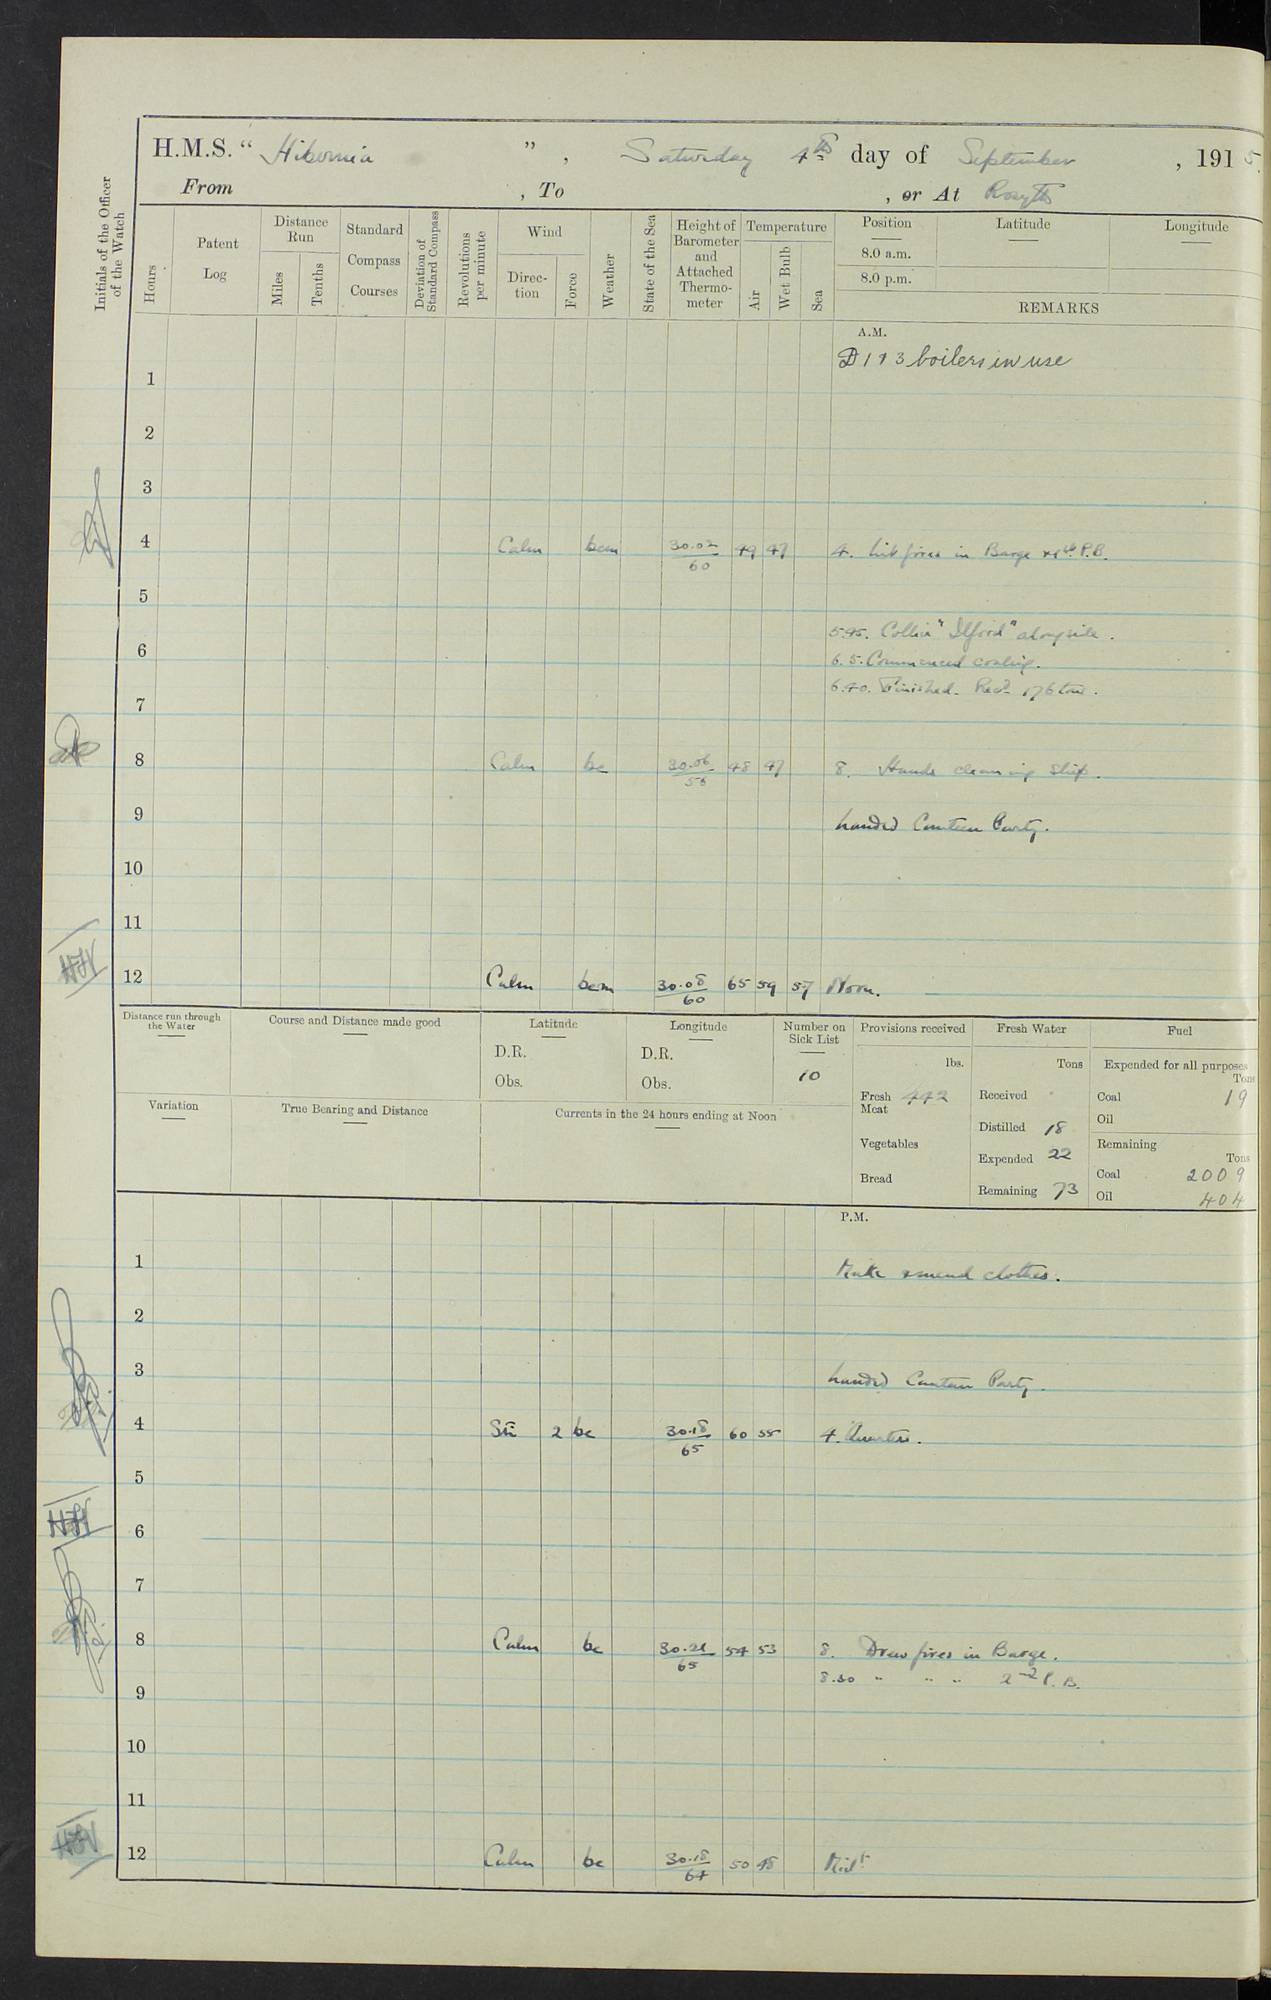 H.M.S. "Hibernia", Saturday 4th day of September, 1915.
From , To , or At Rosyth
Initials of the Officer of the Watch
Hours
Patent Log
Distance Run
Miles
Tenths
Standard Compass Courses
Deviation of Standard Compass
Revolutions per minute
Wind
Direction
Force
Weather
State of the Sea
Height of Barometer and Attached Thermometer
Temperature
Air
Wet Bulb
Sea
Position Latitude Longitude
8.0 a.m.
8.0 p.m.
REMARKS
A.M.
D 1 & 3 boilers in use
1
2
3
4 Calm bcm 30.02/60 49 47 4. Lit fires in Barge & 1st P.B.
5
5.45. Collier "Ilford" alongside.
6
6.5. Commenced coaling.
6.40. Finished. Recd 176 tons.
7
8 Calm bc 30.06/56 48 47 8. Hands cleaning ship.
9 Landed Canteen Party.
10
11
12 Calm bcm 30.08/60 65 59 57 Noon.
Distance run through the Water
Course and Distance made good
Latitude
D.R.
Obs.
Longitude
D.R.
Obs.
Number on Sick List
10
Provisions received
lbs.
Fresh Meat 442
Vegetables
Bread
Fresh Water
Tons
Received
Distilled 18
Expended 22
Remaining 73
Fuel
Expended for all purposes
Tons
Coal 19
Oil
Remaining
Tons
Coal 2009
Oil 404
Variation
True Bearing and Distance
Currents in the 24 hours ending at Noon
P.M.
1 Make & mend clothes.
2
3 Landed Canteen Party.
4 2 bc 30.18/65 60 55 4. Quarters.
5
6
7
8 Calm bc 30.21/65 54 53 8. Drew fires in Barge.
8.30 " " " 2nd P.B.
9
10
11
12 Calm bc 30.18/64 50 48 Midt